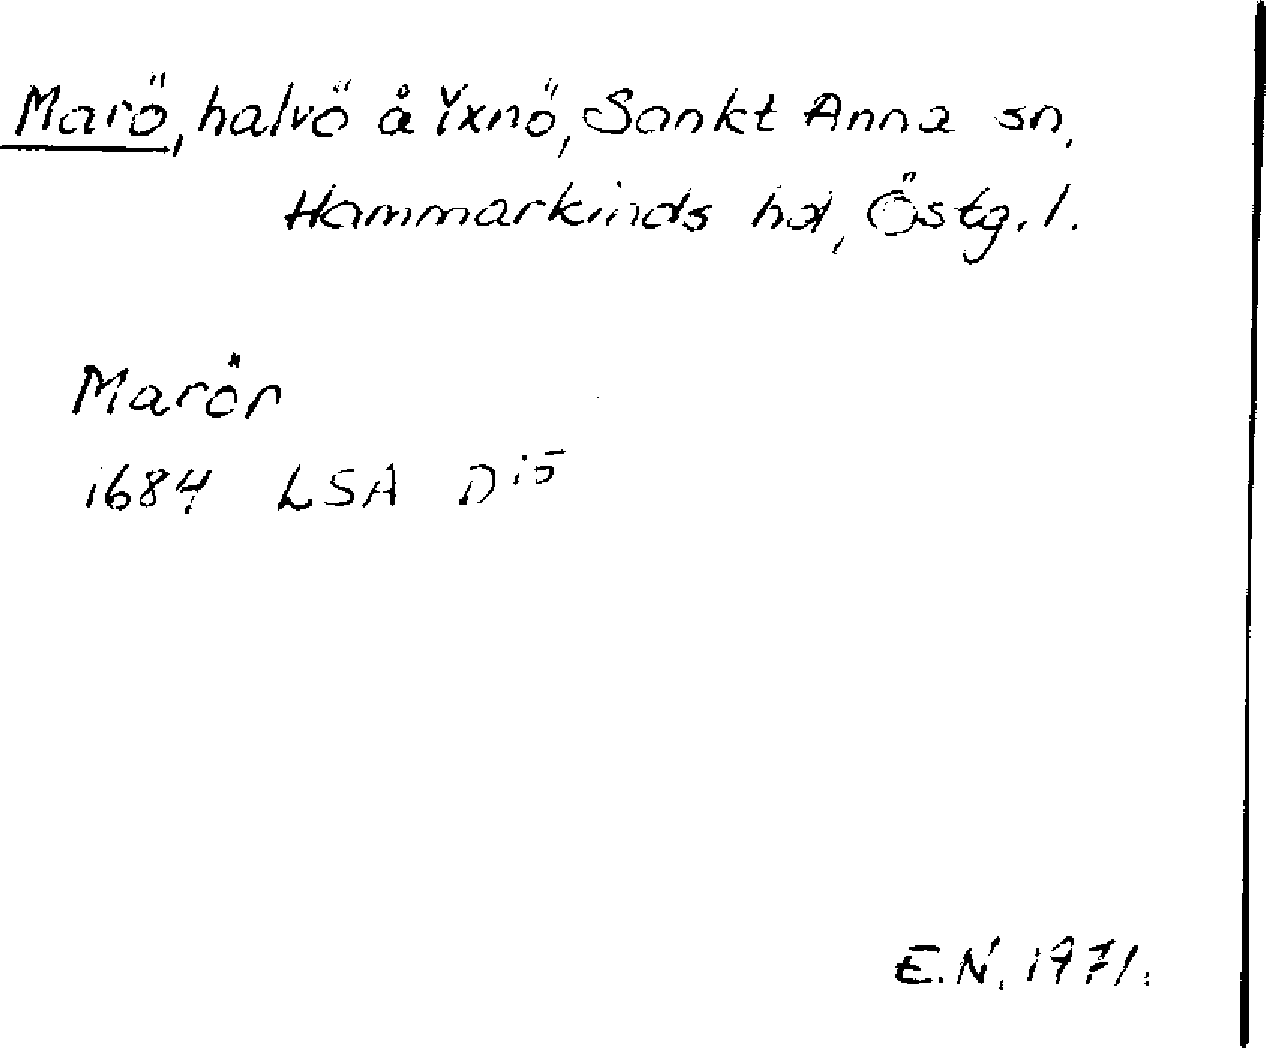 Marö, halvö å Yxnö, Sankt Anna sn,
Hammarkinds hd, Östg.l.
Marör
1684 LSA D 15
E.N. 1971.